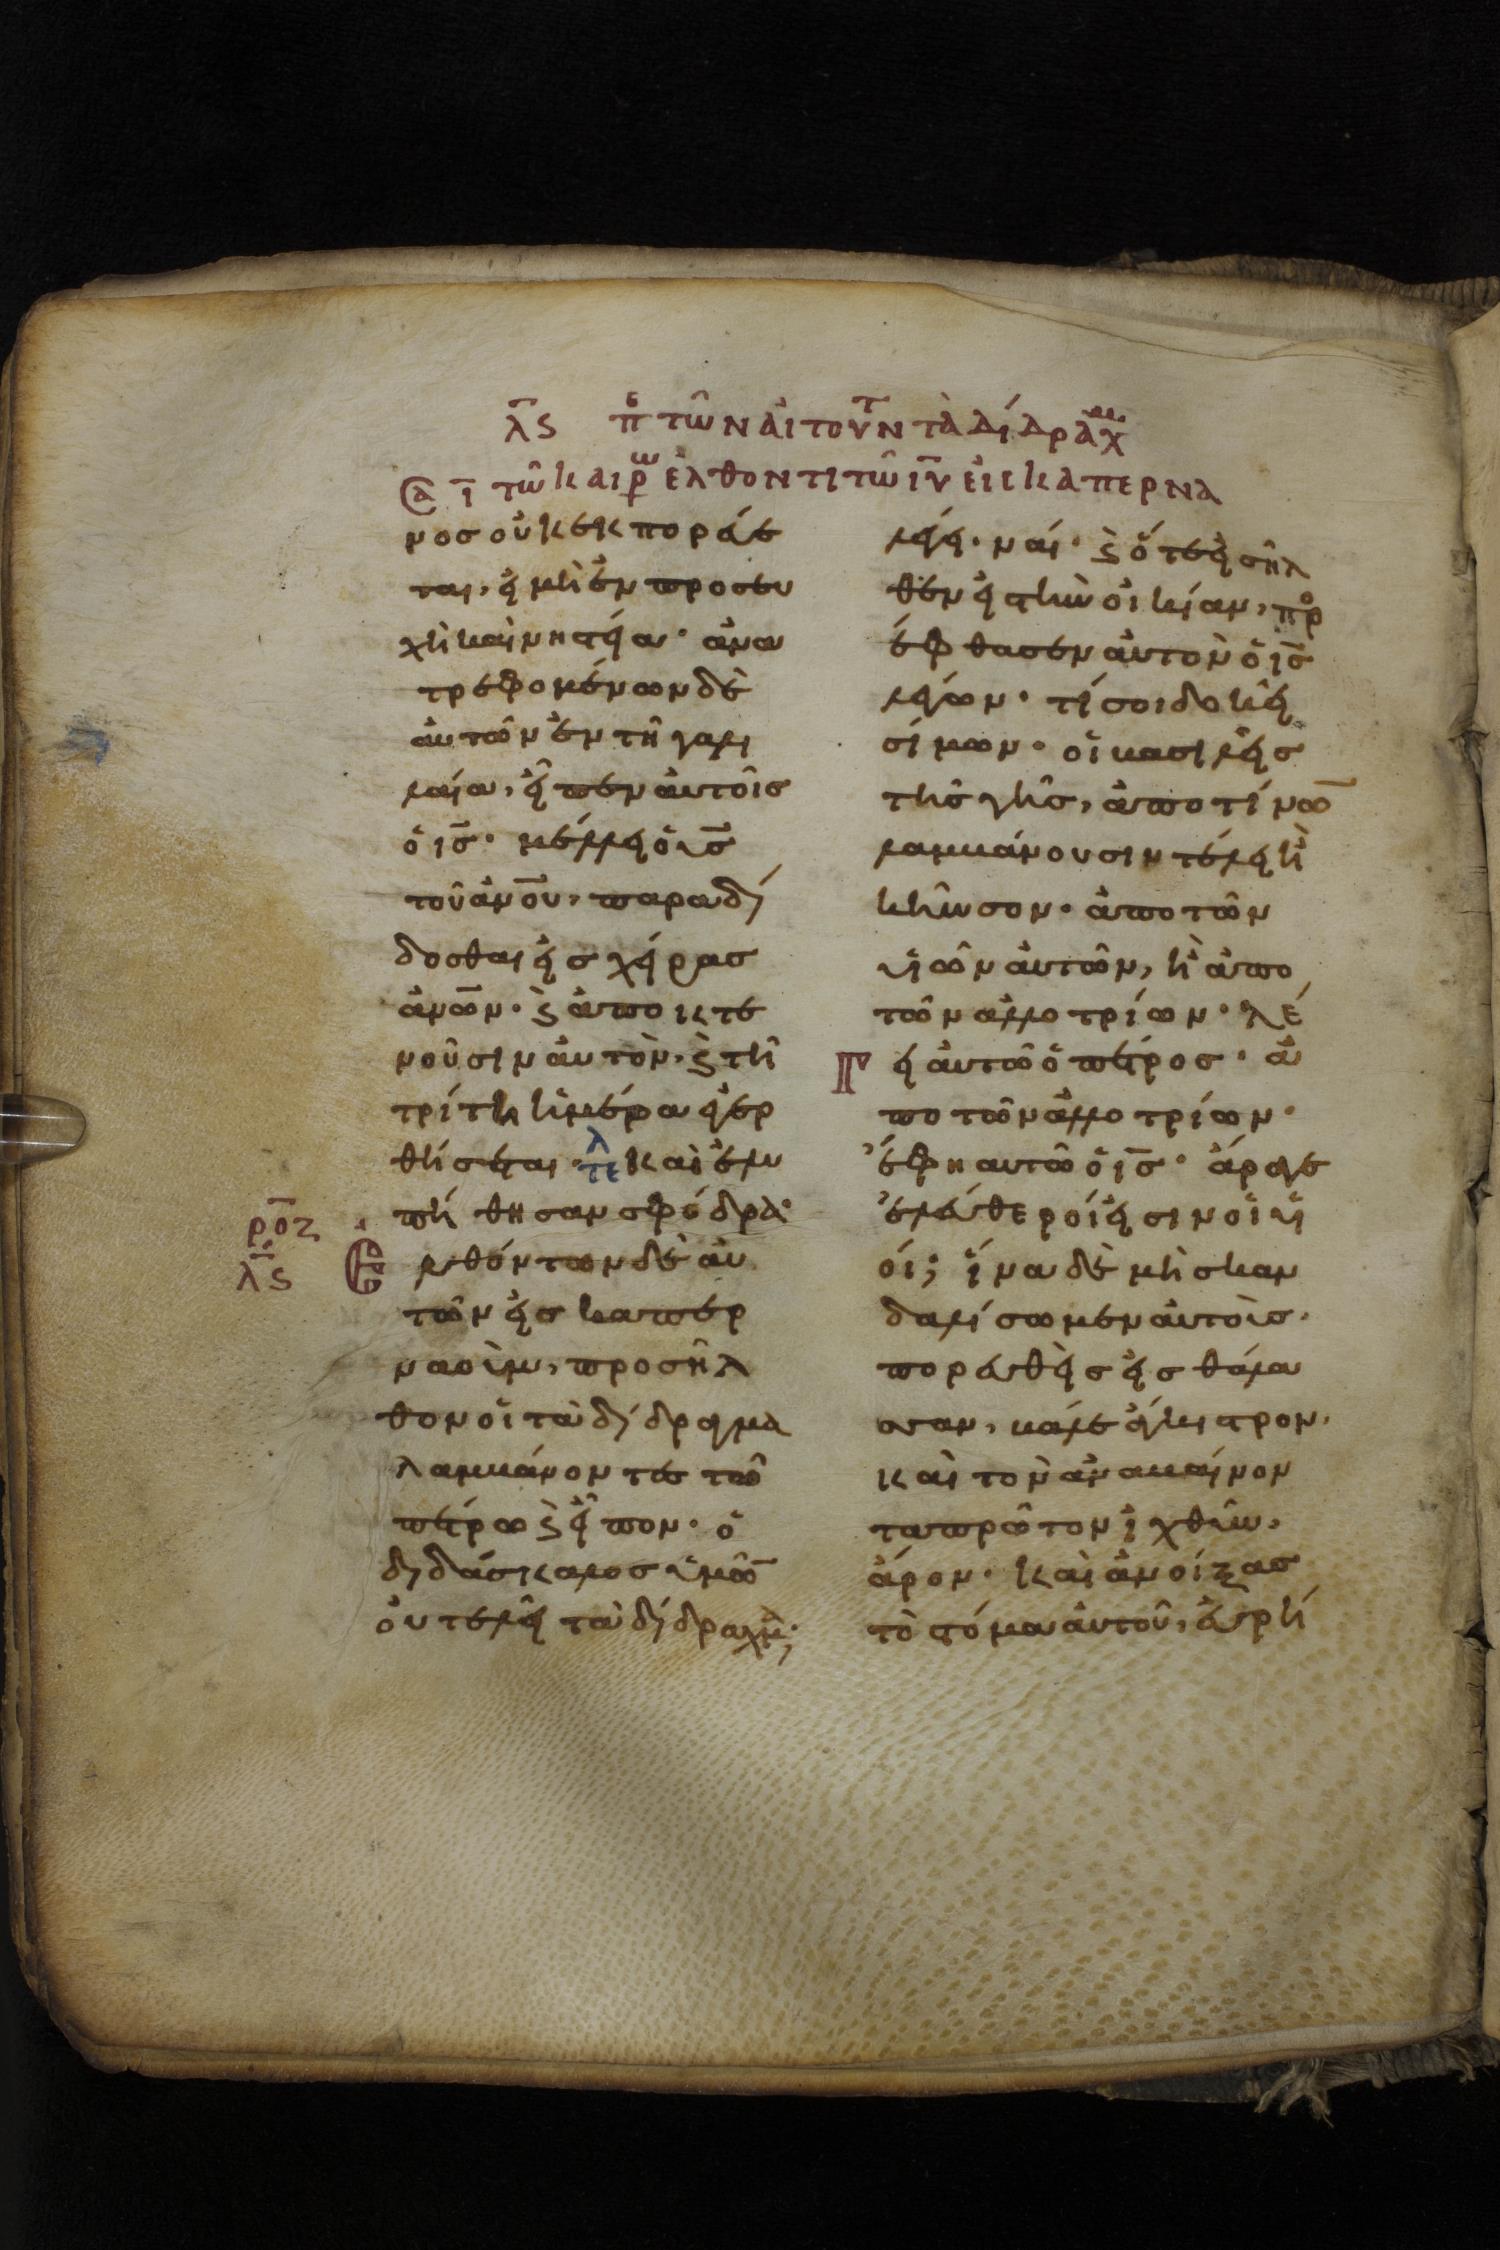 λ̅ς π̅ο̅ τῶν ἀιτούντ τὰ δίδραχμ
ἀ ι̅ τῶ καιρῶ ἐλθοντι τῶ ι̅υ̅ ἐις καπερνα
νοσ ουκ εκπορεύε
ται, εἰ μὴ ἐν προσευ
χῆ καὶ νηστεία· ἀνα
τρεφομένων δὲ
ἀυτῶν ἐν τῆ γαλι
λαία, εἶπεν ἀυτοῖσ
ὁ ι̅σ̅· μέλλει ὁ υ̅σ̅
τοῦ ἀν̅ο̅υ, παραδί
δοσθαι εἰσ χεῖρασ
ἀν̅ω̅ν· ϛ̀ ἀποκτε
νοῦσιν ἀυτὸν, ϛ̀ τῆ
τρίτη ἡμέρα ἐγερ
θήσεται· τε̅λ καὶ ἐλυ
πήθησαν σφόδρα·
ρ̅ο̅ζ
λ̅ς
Ελθόντων δὲ ἀυ
τῶν εἰσ καπερ
ναοὺμ, προσῆλ
θον οἱ τὰ δίδραγμα
λαμβάνοντεσ τῶ
πέτρω ϛ̀ εἶπον· ὁ
διδάσκαλοσ ὑμῶ̅
ὀυ τελεῖ τὰ δίδραχμ̅;
λέγει· ναί· ϛ̀ ὅτε εἰσῆλ
θεν εἰσ τὴν ὀικίαν, πρ̅ο
έφθασεν ἀυτὸν ὁ ι̅σ̅
λέγων· τί σοι δοκεῖ
σίμων· οἱ βασιλεῖσ
τῆσ γῆσ, ἀπο τίνω̅
λαμβάνουσιν τέλει ἢ
κῆνσον· ἀπο τῶν
υἱῶν ἀυτῶν, ἢ ἀπο
τῶν αλλοτρίων· λέ
γει ἀυτῶ ὁ πέτροσ· ἀ
πο τῶν ἀλλοτρίων·
έφη αυτῶ ὁ ι̅σ̅· άραγε
ἐλέυθεροί εἰσιν οἱ υἱ
οί; ἵνα δὲ μὴ σκαν
δαλίσωμεν ἀυτοὺσ·
πορευθεὶς εἰσ θάλα
σσαν, βάλε άγκιστρον,
καὶ τὸν ἀναβαίνον
τα πρῶτον ἰχθὺν,
ἆρον· καὶ ἀνοίξασ
τὸ στόμα ἀυτοῦ, ἑυρή